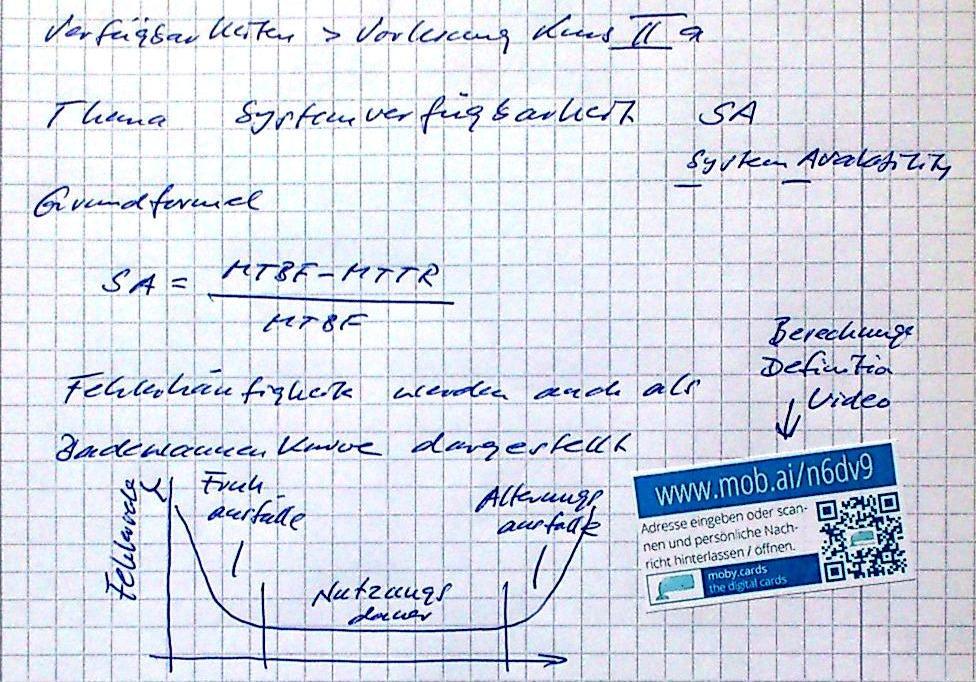 Verfügbarkeiten > Vorlesung Kurs II a
Thema Systemverfügbarkeit SA
System Availability
Grundformel
SA = MTBF - MTTR
MTBF
Fehlerhäufigkeit werden auch als
Badewannen Kurve dargestellt
Berechnungs
Definition
Video
Fehlerrate
λ
Früh
ausfälle
Alterungs
ausfälle
Nutzungs
dauer
www.mob.ai/n6dv9
Adresse eingeben oder scan-
nen und persönliche Nach-
richt hinterlassen / öffnen.
moby.cards
the digital cards